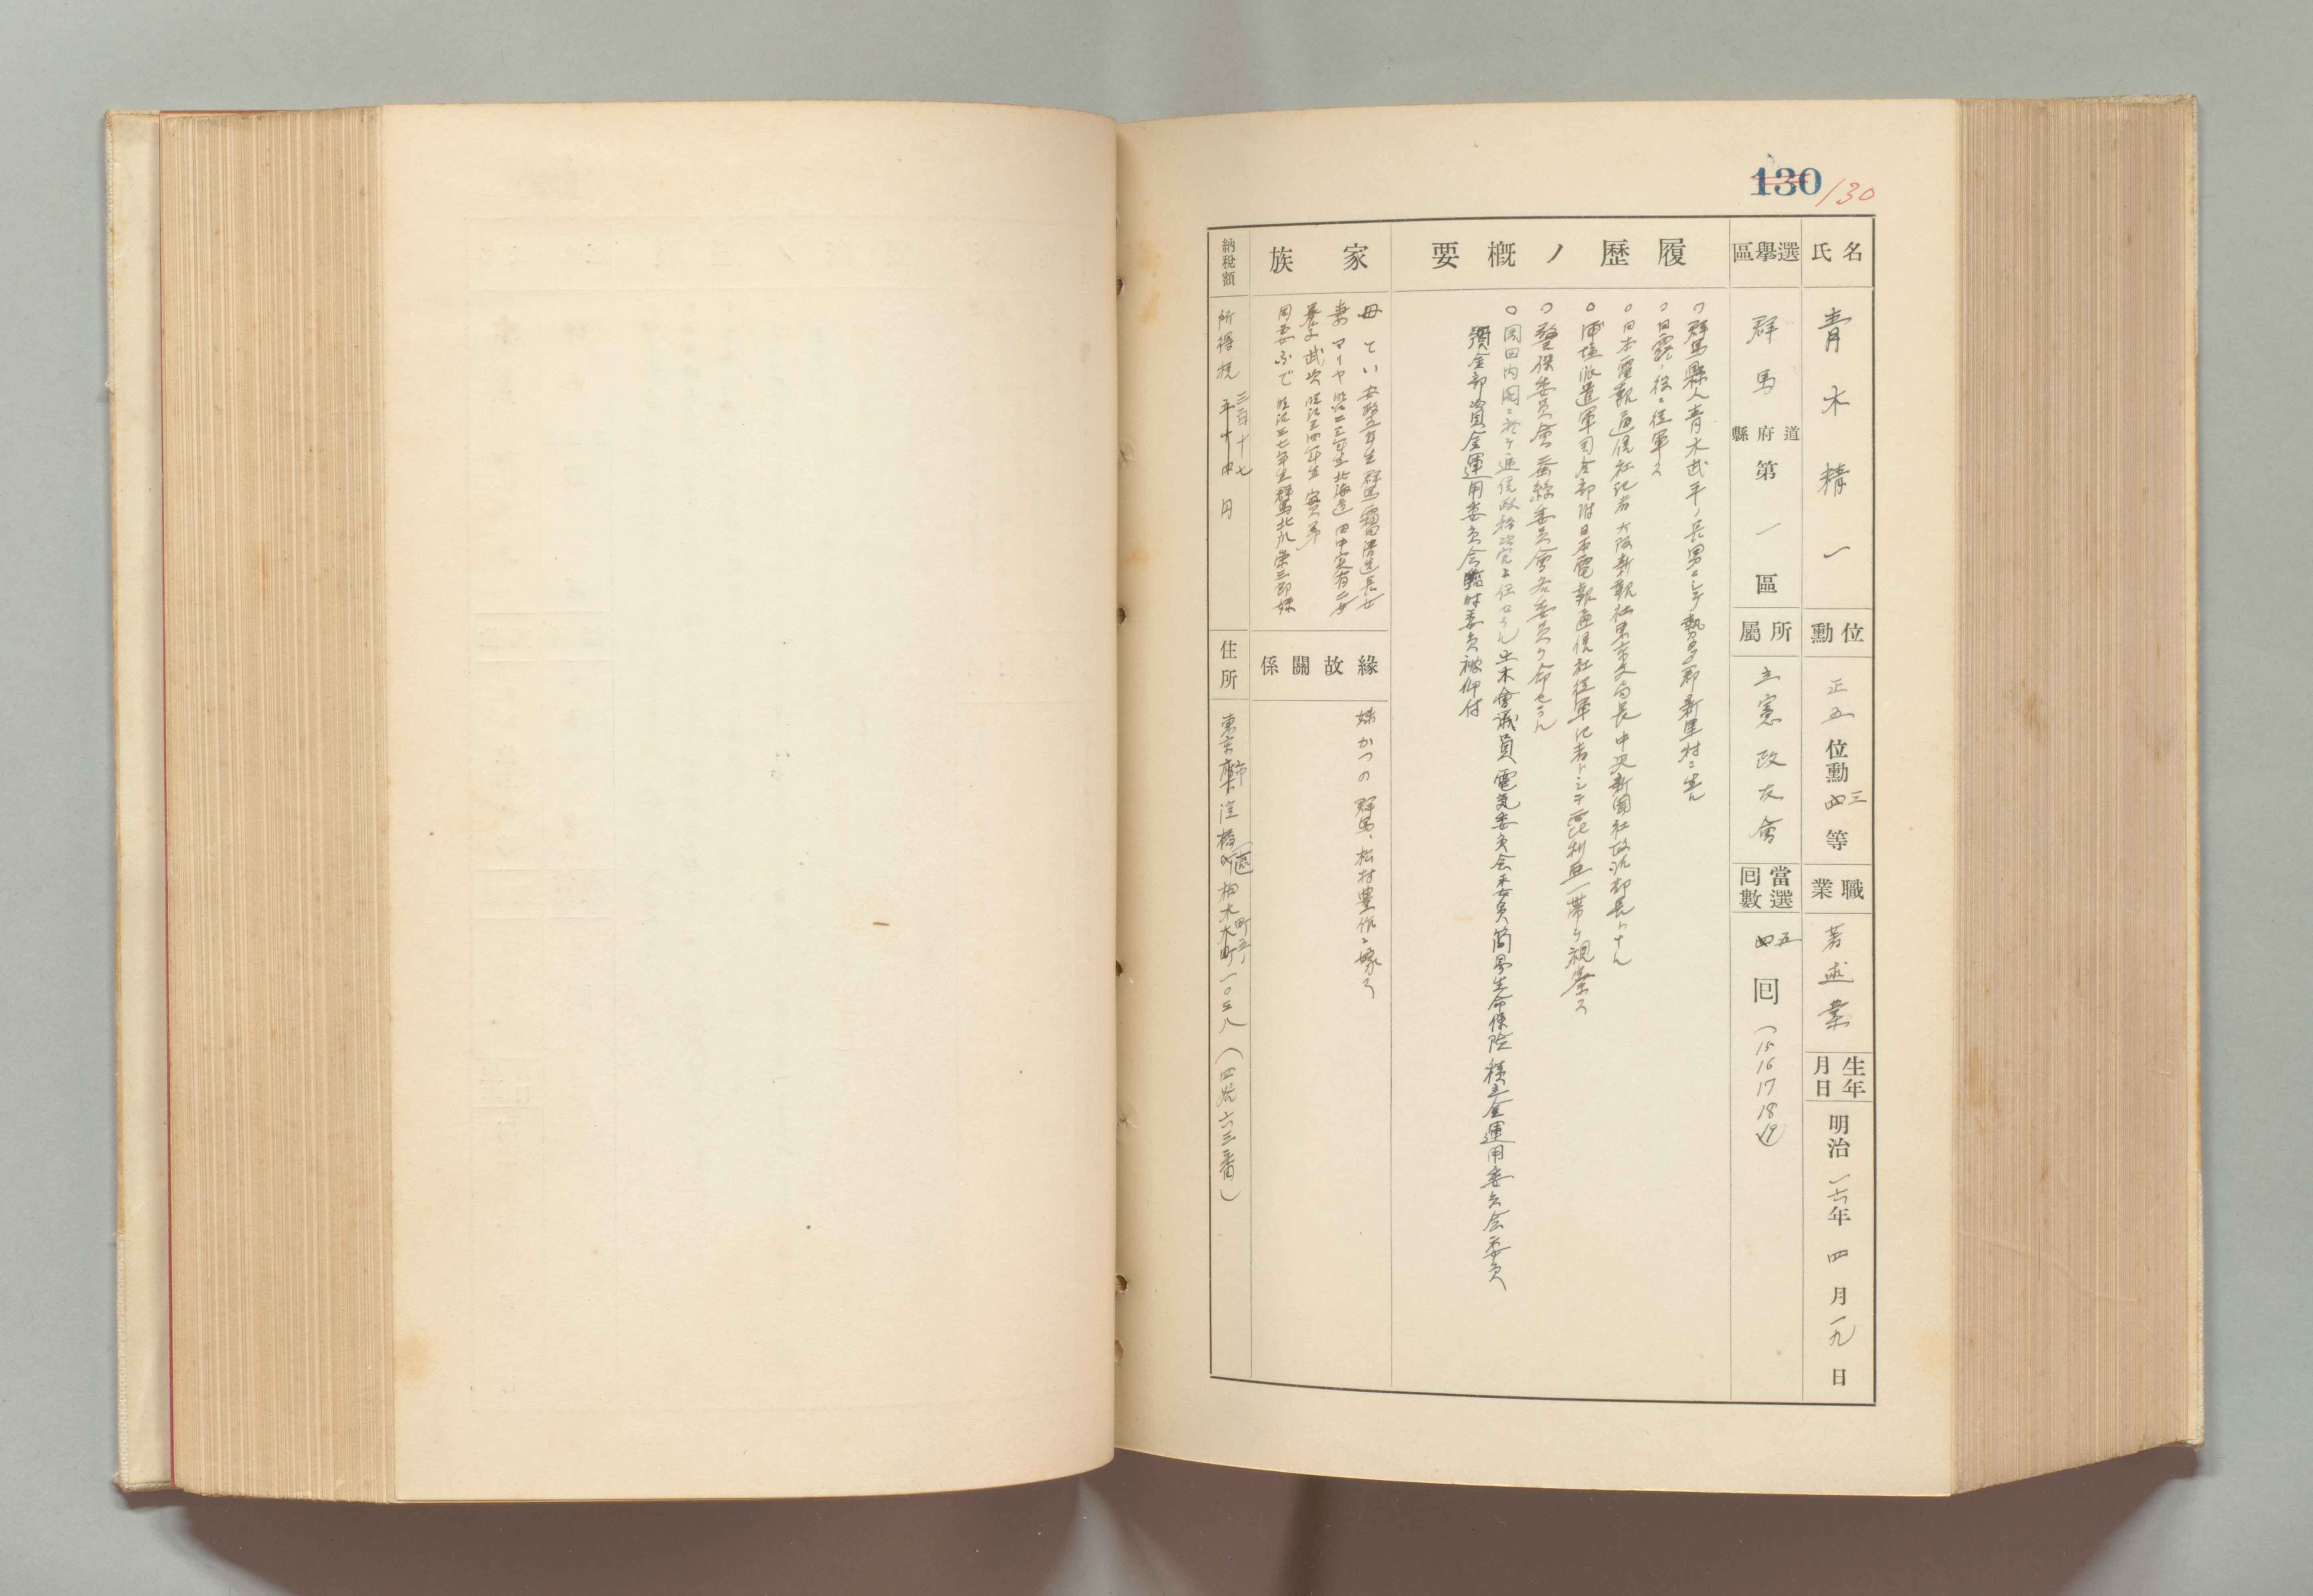 130
130
氏名
青木精一
位勳
正五位勳四三等
職業
著述業
生年月日
明治一六年四月一九日
選擧區
群馬道府縣第一區
所屬
立憲政友會
當選回數
四五回(15 16 17 18 19)
履歷ノ概要
○群馬縣人青木武平ノ長男ニシテ勢多郡新里村ニ生ル
○日露ノ役ニ從軍ス
○日本電報通信社記者大阪新報社東京支局長中央新聞社政治部長トナル
○浦塩派遣軍司令部附日本電報通信社從軍記者トシテ西比利亞一帶ヲ視察ス
○警保委員會蚕絲委員會各委員ヲ命セラル
○岡田内閣ニ於テ逓信政務次官ニ任セラル土木會議員電気委員会委員簡易生命保険積立金運用委員会委員
預金部資金運用委員会臨時委員被仰付
家族
母てい安政五年生群馬 長女
妻マーヤ明治二三年生北海道田中 二女
養子武次明治三四年生實弟
同妻ふで明治三七年生群馬北爪榮三郎妹
緣故關係
妹かつの群馬、松村豊作ニ嫁ス
納稅額
所得税
三百十七
五十四円
住所
東京府市淀橋町區柏木木町町五ノ一〇三八(四谷六三番)